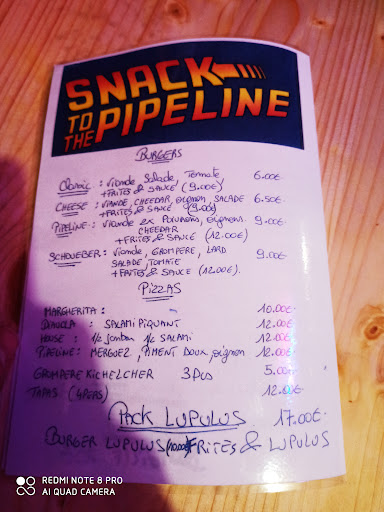 SNACK
TO
THE PIPELINE
BURGERS
Classic : Viande Salade, Tomate, 6.00€
+FRITES & SAUCE (9.00€)
CHEESE : VIANDE, CHEEDAR, oignon, SALADE 6.50€
+FRITES & SAUCE (9.00)
PIPELINE : Viande 2x Poivrons, oignons. 9.00€
CHEEDAR
+FRITES & SAUCE (12.00€)
SCHOUEBER : Viande, GROMPERE, LARD 9.00€
SALADE, TOMATE
+FRITES & SAUCE (12.00€).
PIZZAS
MARGHERITA : 10.00€
DIAVOLA : SALAMI PIQUANT 12.00€
HOUSE : 1/2 Jambon 1/2 SALAMI 12.00€
PIPELINE : MERGUEZ, PIMENT DOUX, oignon 12.00€
GROMPERE KICHELCHER 3PCS 5.00€
TAPAS (4PERS) 12.00€
PACK LUPULUS 17.00€
BURGER LUPULUS FRITES & LUPULUS
REDMI NOTE 8 PRO
AI QUAD CAMERA